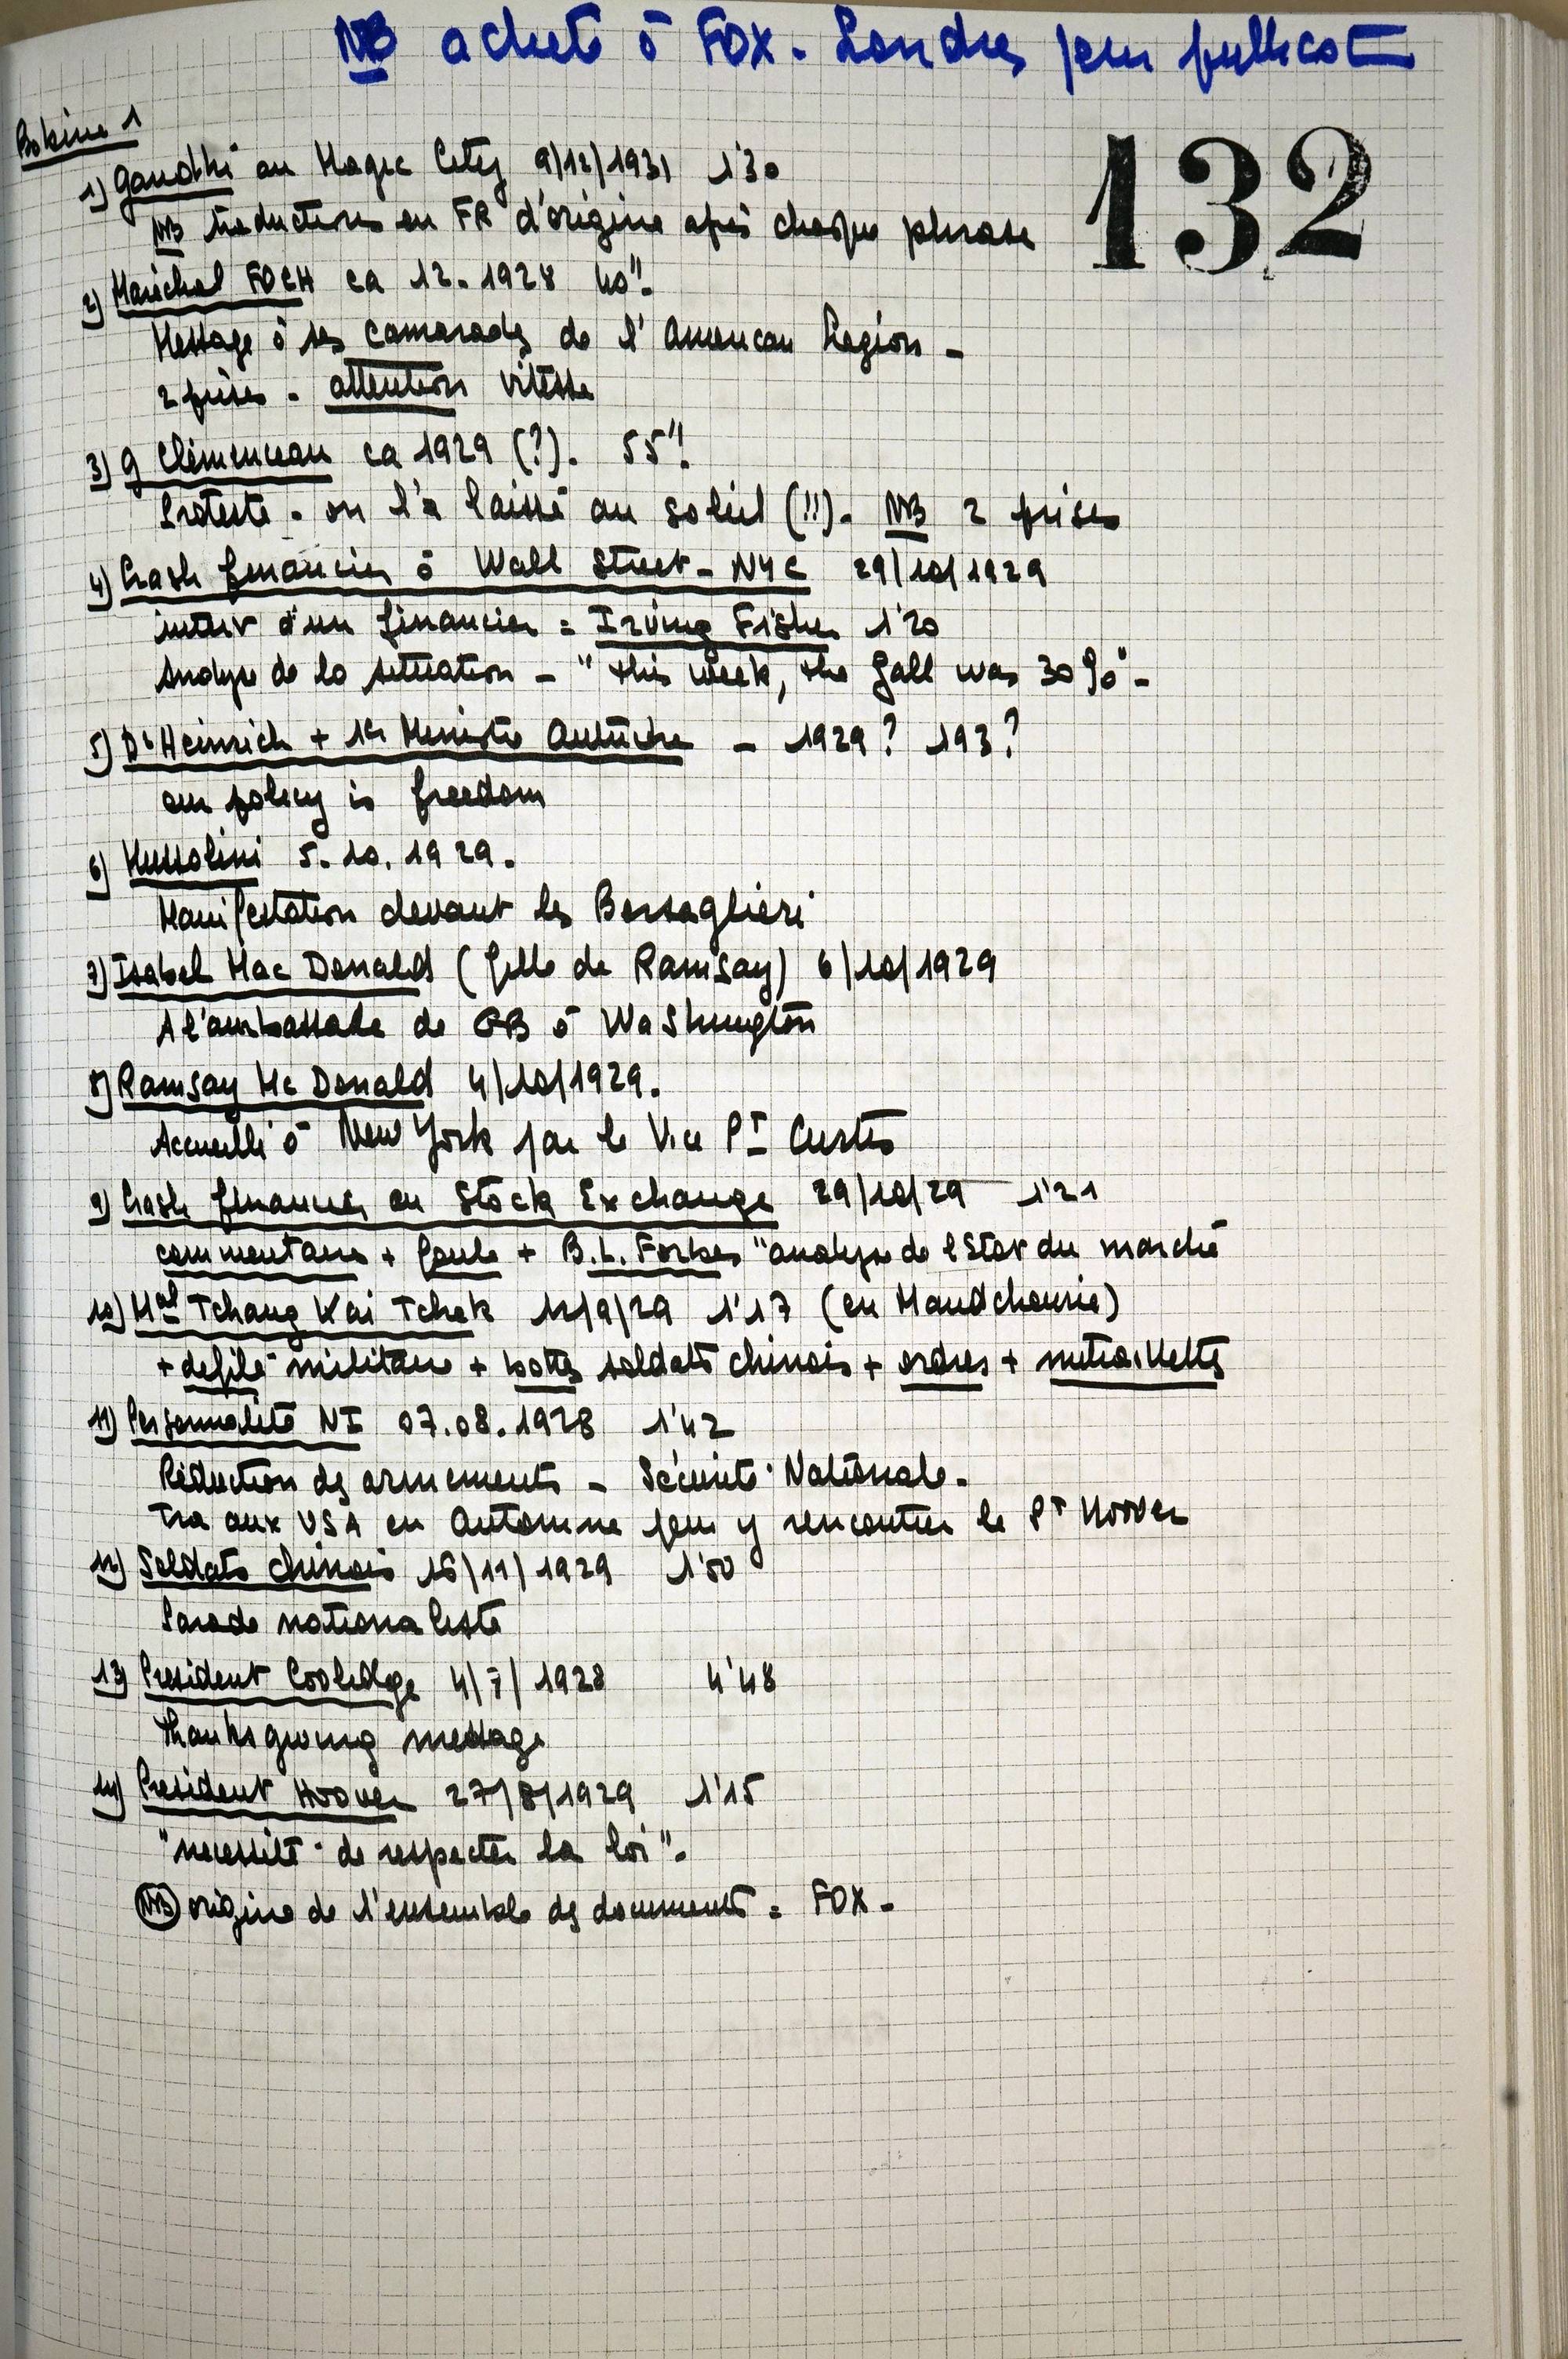 NB acheté à FOX. Londres pour publication
132
Bobine 1
1) Gandhi au Magic City 9/12/1931 1'30
NB traductions en FR d'origine après chaque phrase
2) Maréchal FOCH ca 12.1928 40"
Message à ses camarades de l'American Legion -
2 prises - attention vitesse
3) G Clémenceau ca 1929 (?). 55"
Proteste - on l'a laissé au soleil (!!). NB 2 prises
4) Crash financier à Wall Street - NYC 29/10/1929
interv d'un financier = Irving Fisher 1'20
Analyse de la situation - "this week, the fall was 30%" -
5) Dr Heinrich + 1er Ministre Autriche - 1929? 193?
our policy is freedom
6) Mussolini 5.10.1929.
Manifestation devant les Bersaglieri
7) Isabel Mac Donald (fille de Ramsay) 6/10/1929
A l'ambassade de GB à Washington
8) Ramsay Mc Donald 4/10/1929.
Accueilli à New York par le Vice Pt Curtis
9) Crash financier au Stock Exchange 29/10/29 1'21
commentaire + foule + B.L. Forbes "analyse de l'état du marché
10) Mal Tchang Kai Tchek 12/9/29 1'17 (en Mandchourie)
+ défilé militaire + bottes soldats chinois + ordres + mitraillettes
11) Personnalité NI 07.08.1928 1'42
Réduction des armements - Sécurité Nationale -
Ira aux USA en Automne pour y rencontrer le Pt Hoover
12) Soldats chinois 16/11/1929 1'50
Parade nationaliste
13) President Coolidge 4/7/1928 4'48
Thanksgiving message
14) President Hoover 27/8/1929 1'15
"nécessité de respecter la loi".
NB origine de l'ensemble des documents = FOX -